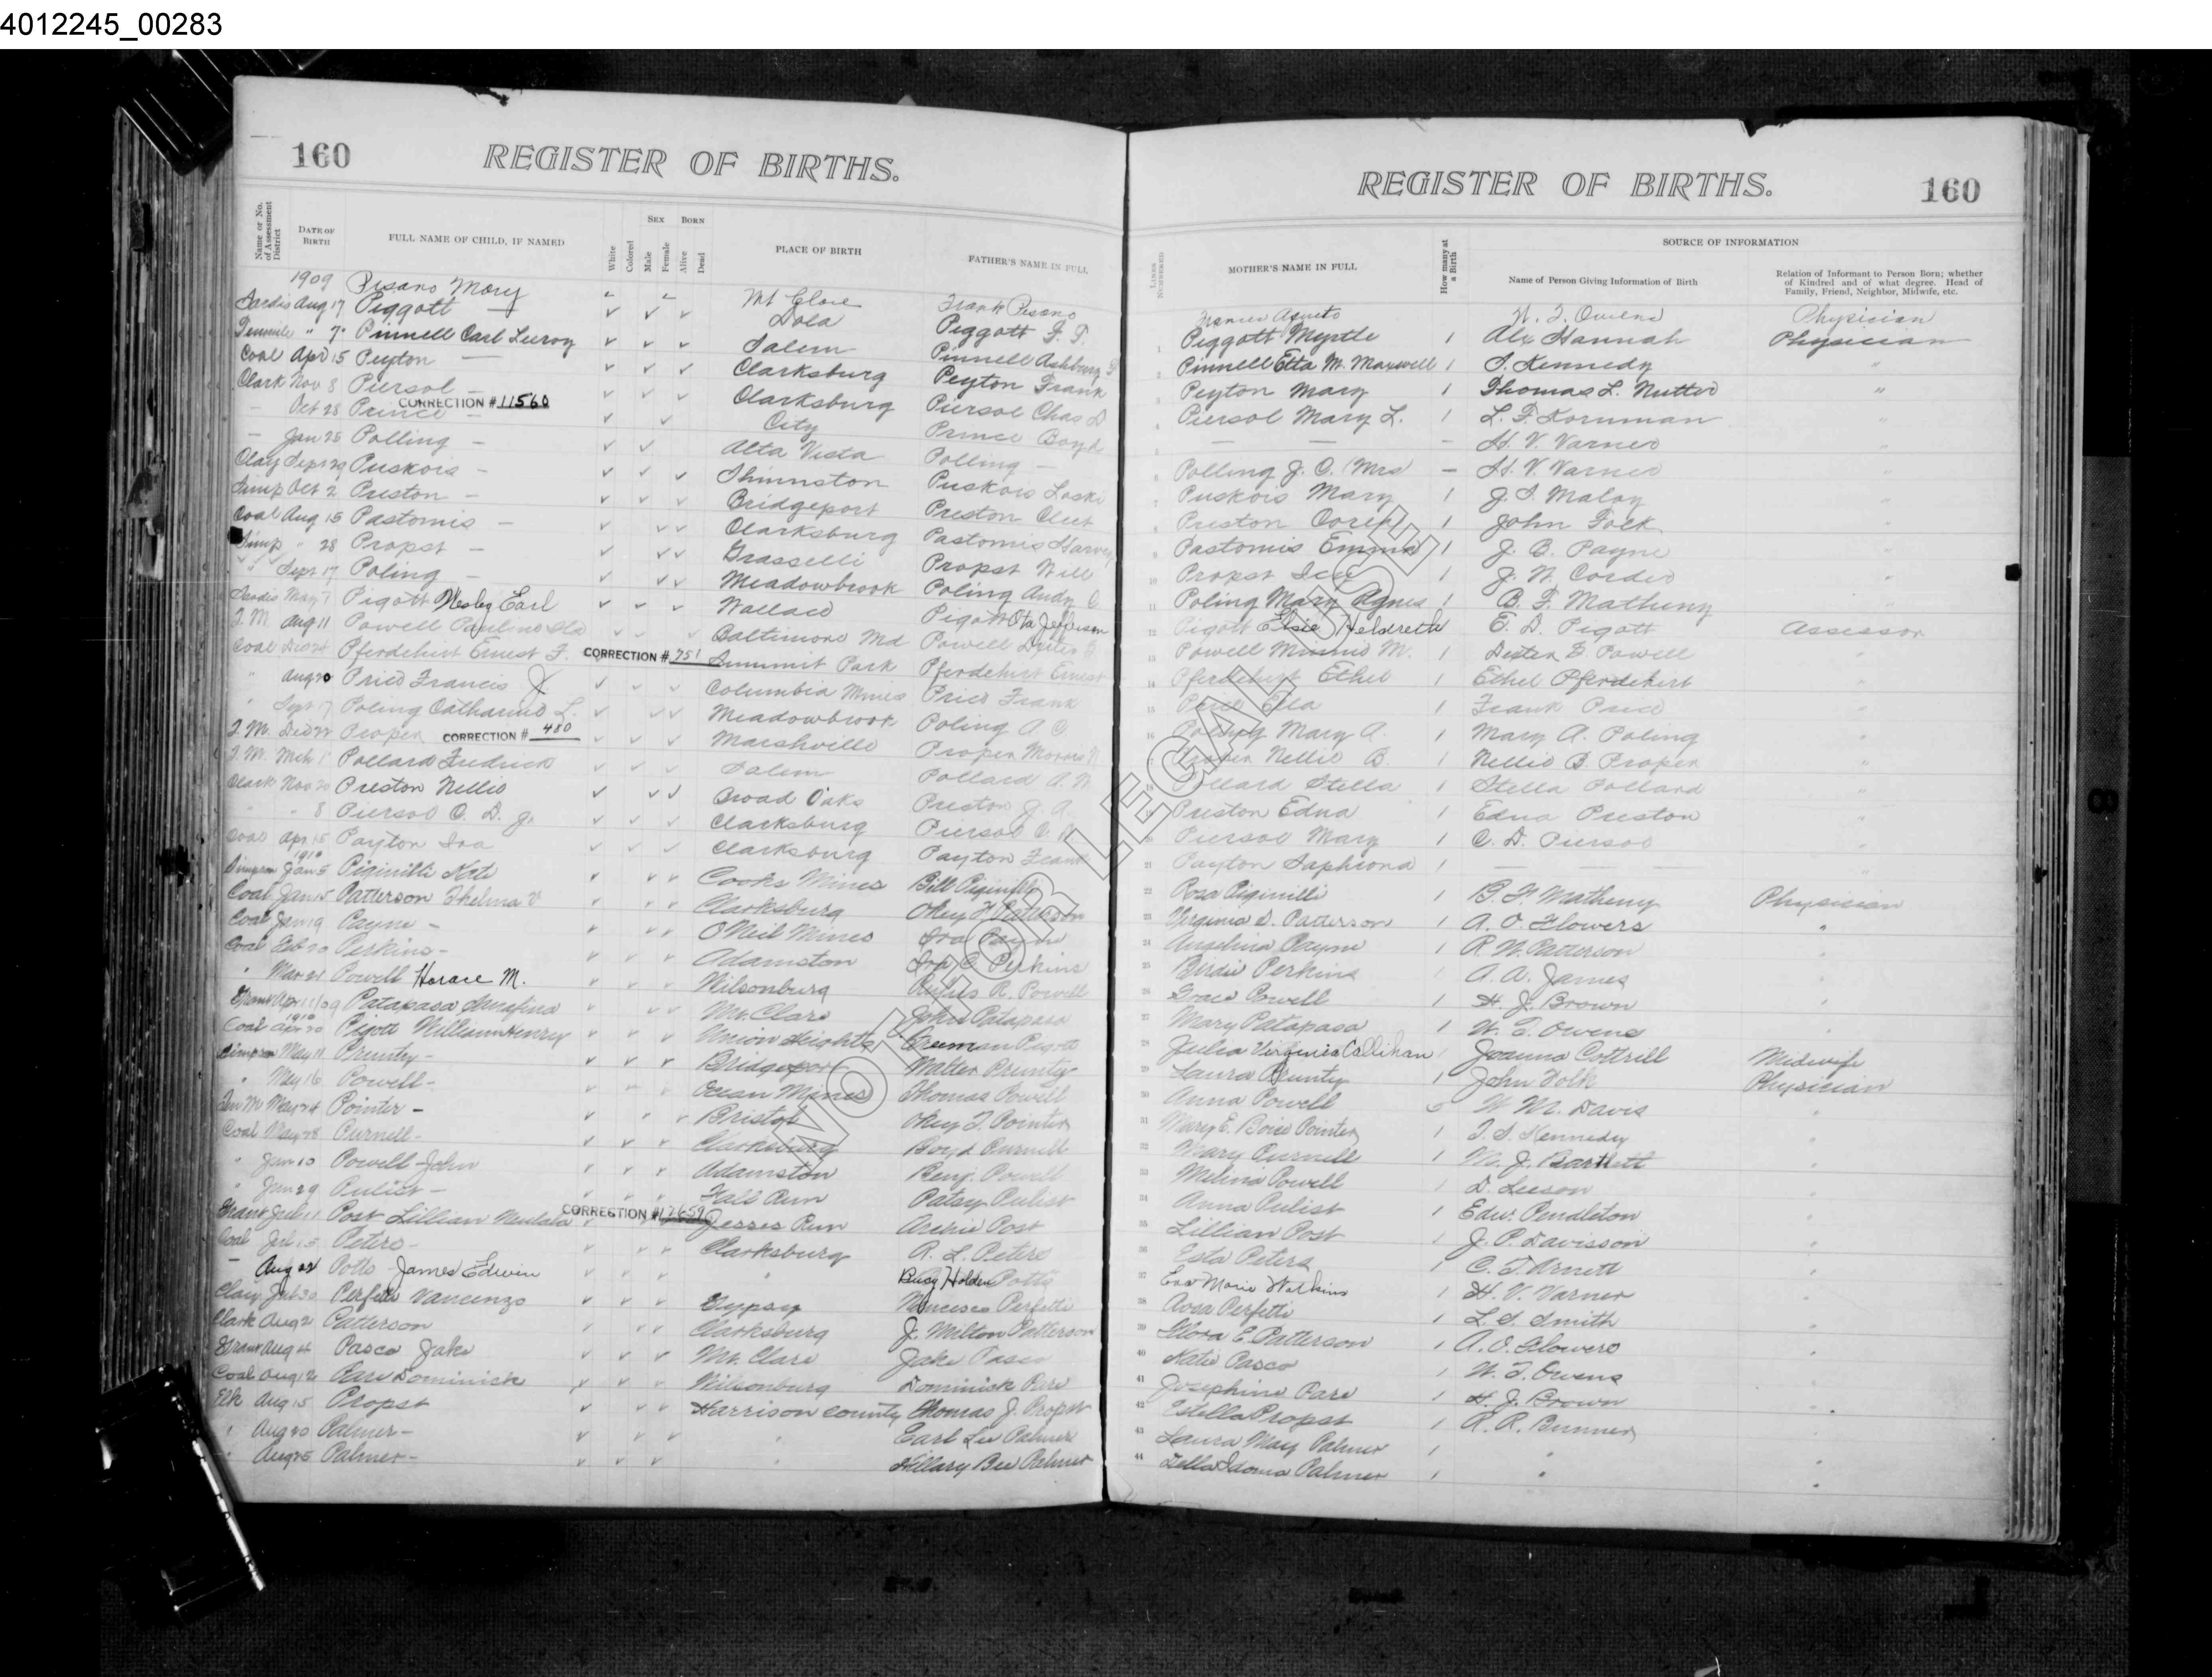 4012245_00283
160 REGISTER OF BIRTHS.
REGISTER OF BIRTHS. 160
Name or No. of Assessment District
DATE OF BIRTH
FULL NAME OF CHILD, IF NAMED
White
Colored
SEX
Male
Female
BORN
Alive
Dead
PLACE OF BIRTH
FATHER'S NAME IN FULL
LINES NUMBERED
MOTHER'S NAME IN FULL
How many at a Birth
SOURCE OF INFORMATION
Name of Person Giving Information of Birth
Relation of Informant to Person Born; whether of Kindred and of what degree. Head of Family, Friend, Neighbor, Midwife, etc.
1909 Pisano Mary Mt Clare Frank Pisano Physician
Sardis Aug 17 Piggott — Dola Piggott F. F. 1 Piggott Myrtle 1 Alex Hannah Physician
Tenmile " 7 Pinnell Carl Leeroy Salem Pinnell Ashburg 2 Pinnell Etta M. Maxwell 1 S. Kennedy "
Coal Apr 15 Peyton — Clarksburg Peyton Frank Peyton Mary 1 Thomas L. Nutter "
Clark Nov 8 Piersol — Clarksburg Piersol Chas D 4 Piersol Mary L. 1 L. F. Kornman
— Oct 28 Prince — CORRECTION # 11560 City Prince Boyd — — — H. V. Varner
— Jan 25 Polling — Alta Vista Polling — Polling J. O. (Mrs) — H. V. Varner
Clay Sept 29 Puskois — Shinnston Puskois 7 Puskois Mary 1 J. S. Maloy
Simp Oct 2 Preston — Bridgeport Preston Cleet 8 Preston 1 John Folk
Coal Aug 15 Pastomis — Clarksburg Pastomis Harvey 9 Pastomis Emma 1 J. B. Payne
Simp " 28 Propst — Grasselli Propst Will 10 Propst 1 J. W. Corder
" Sept 17 Poling — Meadowbrook Poling Andy C 11 Poling Mary Agnes 1 B. F. Matheny
Sardis May 7 Pigott Wesley Earl Wallace Pigott Ota Jefferson 12 Pigott Elsie Heldreth 1 E. D. Pigott Assessor
T. M. Aug 11 Powell Pauline Baltimore Md Powell 13 Powell M. 1 Powell
Coal Pferdehirt Ernest F. CORRECTION # 751 Summit Park Pferdehirt Ernest 14 Pferdehirt Ethel 1 Ethel Pferdehirt
" Aug 20 Price Francis J. Columbia Mines Price Frank 15 Price Ella 1 Frank Price
" Sept 17 Poling Catharine L. Meadowbrook Poling A. C. 16 Poling Mary A. 1 Mary A. Poling
T. M. Dec 22 Proper CORRECTION # 480 Marshville Proper Morris N Proper Nellie B. 1 Nellie B. Proper
T. M. Mch 1 Pollard Fredrick Salem Pollard A. N. 18 Pollard Stella 1 Stella Pollard
Clark Nov 20 Preston Nellie Broad Oaks Preston J. A. Preston Edna 1 Edna Preston
" " 8 Piersol C. D. Jr. Clarksburg Piersol C. D. 20 Piersol Mary 1 C. D. Piersol
Coal Apr 15 Payton Ira Clarksburg Payton Frank 21 Payton Saphrona 1 — —
1910
Simpson Jan 5 Piginilli Kate Cooks Mines Bill Piginilli 22 Rosa Piginilli 1 B. F. Matheny Physician
Coal Jan 15 Patterson Thelma V Clarksburg Okey F. Patterson 23 Virginia S. Patterson 1 A. O. Flowers "
Coal Jan 19 Payne — O'Neil Mines Ira Payne 24 Angelina Payne 1 R. W. Patterson
Coal Feb 20 Perkins — Adamston Ira C. Perkins 25 Birdie Perkins A. A. James
" Mar 21 Powell Horace M. Wilsonburg Rufus R. Powell 26 Grace Powell 1 H. J. Brown
Grant Patapasa Serafina Mt. Clare John Patapasa 27 Mary Patapasa 1 W. E. Owens
1910
Coal Apr 20 Pigott William Henry Union Heights Freeman Pigott 28 Julia Virginia Callihan 1 Joanna Cottrill Midwife
Simpson May 11 Prunty — Bridgeport Walter Prunty 29 Laura Prunty 1 John Folk Physician
" May 16 Powell — Ocean Mines Thomas Powell 30 Anna Powell W. M. Davis
Ten M May 24 Pointer — Bristol Okey T. Pointer 31 Mary E. Boice Pointer 1 T. S. Kennedy
Coal May 28 Purnell — Clarksburg Boyd Purnell 32 Mary Purnell 1 M. J. Bartlett
" Jun 10 Powell John Adamston Benj. Powell 33 Melina Powell 1 D. Leeson
" Jun 29 Pulist — Hall Run Patsy Pulist 34 Anna Pulist 1 Edw. Pendleton
Grant Post Lillian CORRECTION # 17659 Jesses Run Archie Post 35 Lillian Post 1 J. P. Davisson
Coal Jul 15 Peters — Clarksburg R. L. Peters 36 Esta Peters 1 C. T. Arnett
— Aug 22 Potts James Edwin " Holden Potts 37 Eva Marie Watkins 1 H. V. Varner
Clay Jul 30 Perfetti Vancenzo Gypsy Perfetti 38 Rosa Perfetti 1 L. S. Smith
Clark Aug 2 Patterson Clarksburg J. Milton Patterson 39 Flora E. Patterson 1 A. O. Flowers
Grant Aug 4 Pasco Jake Mt. Clare Jake Pasco 40 Katie Pasco 1 W. T. Owens
Coal Aug 12 Pare Dominick Wilsonburg Dominick Pare 41 Josephine Pare 1 H. J. Brown
Elk Aug 15 Propst Harrison County Thomas J. Propst 42 Estella Propst 1 R. R. Bunner
" Aug 20 Palmer — " Earl Lee Palmer 43 Laura May Palmer 1 "
" Aug 25 Palmer — " Hillary Bee Palmer 44 Zella Idona Palmer 1 "
NOT FOR LEGAL USE
8